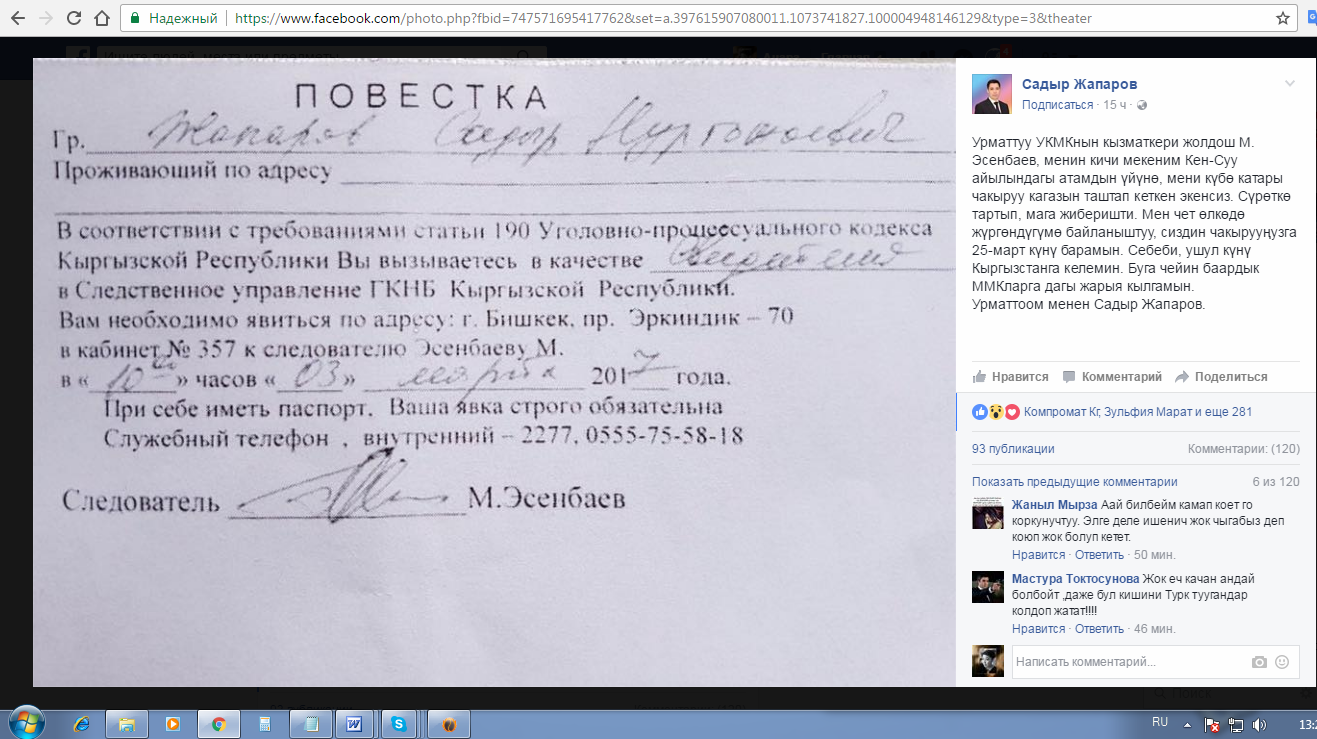 Надежный
https://www.facebook.com/photo.php?fbid=747571695417762&set=a.397615907080011.1073741827.100004948146129&type=3&theater
ПОВЕСТКА
Гр. Жапаров Садыр Нургожоевич
Проживающий по адресу
В соответствии с требованиями статьи 190 Уголовно-процессуального кодекса
Кыргызской Республики Вы вызываетесь в качестве Свидетеля
в Следственное управление ГКНБ Кыргызской Республики.
Вам необходимо явиться по адресу: г. Бишкек, пр. Эркиндик – 70
в кабинет № 357 к следователю Эсенбаеву М.
в « 10 00 » часов « 03 » марта 2017 года.
При себе иметь паспорт. Ваша явка строго обязательна
Служебный телефон , внутренний – 2277, 0555-75-58-18
Следователь М.Эсенбаев
Садыр Жапаров
Подписаться · 15 ч ·
Урматтуу УКМКнын кызматкери жолдош М.
Эсенбаев, менин кичи мекеним Кен-Суу
айылындагы атамдын үйүнө, мени күбө катары
чакыруу кагазын таштап кеткен экенсиз. Сүрөткө
тартып, мага жиберишти. Мен чет өлкөдө
жүргөндүгүмө байланыштуу, сиздин чакырууңузга
25-март күнү барамын. Себеби, ушул күнү
Кыргызстанга келемин. Буга чейин баардык
ММКларга дагы жарыя кылгамын.
Урматтоом менен Садыр Жапаров.
Нравится Комментарий Поделиться
Компромат Кг, Зульфия Марат и еще 281
93 публикации Комментарии: (120)
Показать предыдущие комментарии 6 из 120
Жаныл Мырза Аай билбейм камап коет го
коркунучтуу. Элге деле ишенич жок чыгабыз деп
коюп жок болуп кетет.
Нравится · Ответить · 50 мин.
Мастура Токтосунова Жок еч качан андай
болбойт ,даже бул кишини Турк туугандар
колдоп жатат!!!!
Нравится · Ответить · 46 мин.
Написать комментарий...
RU